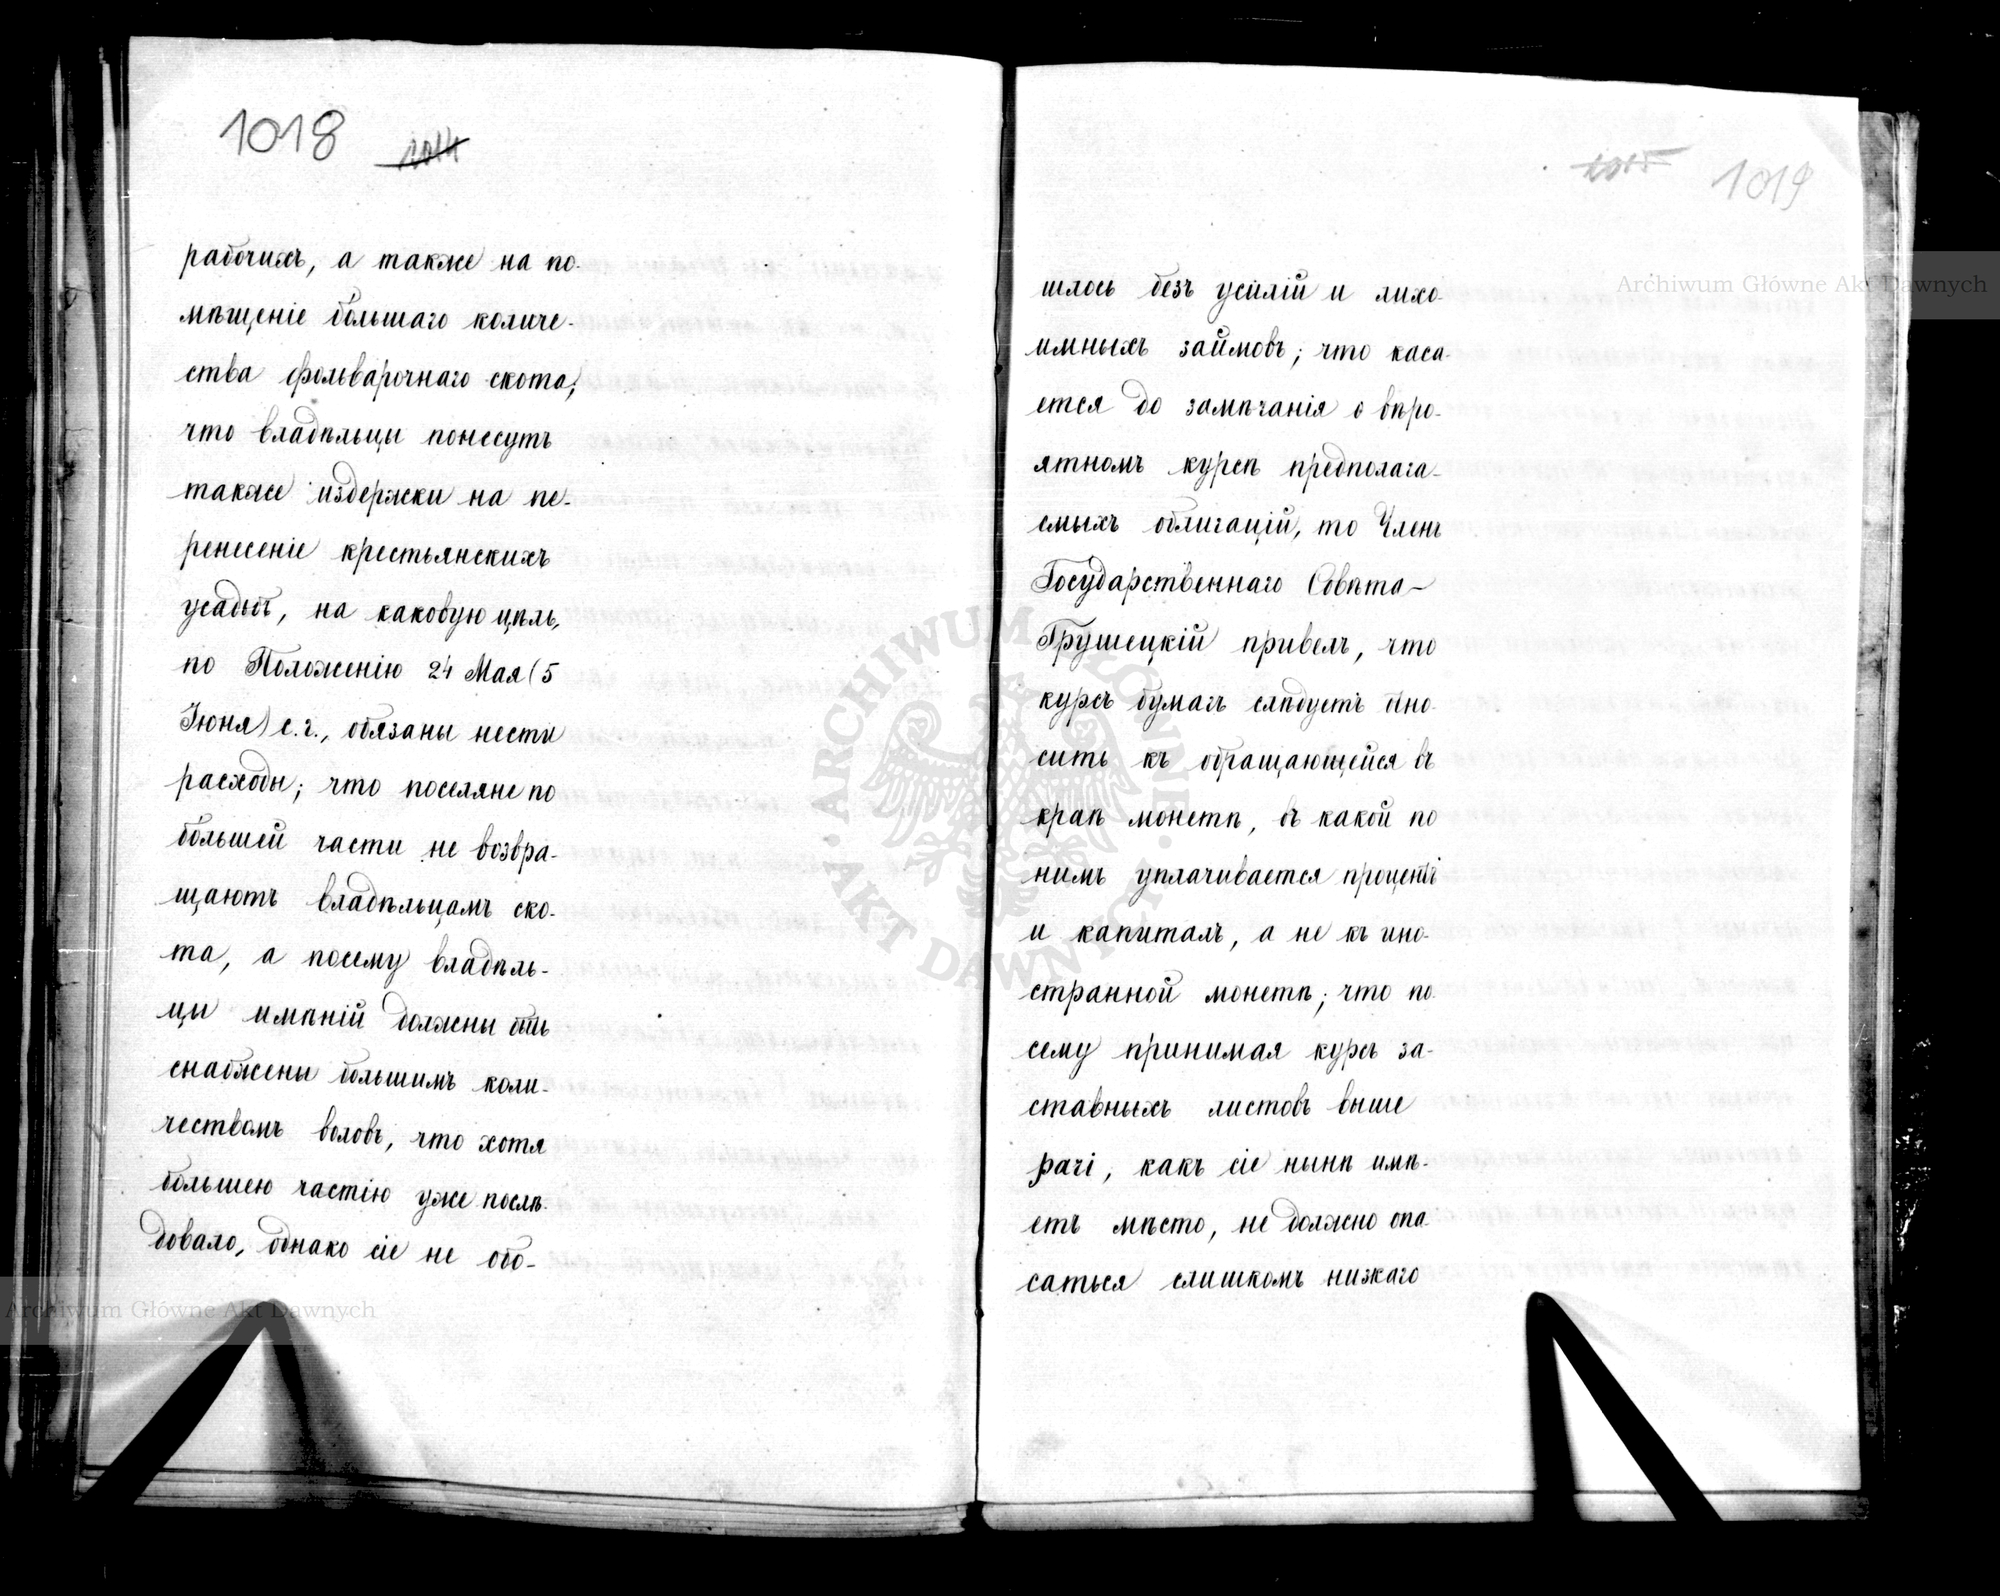 1018 1014
рабочихъ, а также на по-
мѣщеніе большаго количе-
ства фольварочнаго скота;
что владѣльцы понесутъ
также издержки на пе-
ренесеніе крестьянскихъ
усадьбъ, на каковую цѣль,
по Положенію 24 Мая (5
Іюня) с. г., обязаны нести
расходы; что поселяне по
большей части не возвра-
щаютъ владѣльцамъ ско-
та, а посему владѣль-
цы имѣній должны быть
снабжены большимъ коли-
чествомъ воловъ, что хотя
большею частію уже послѣ-
довало, однако сіе не обо-
1015 1019
шлось безъ усилій и лихо-
имныхъ займовъ; что каса-
ется до замѣчанія о вѣро-
ятномъ курсѣ предполага-
емыхъ облигацій, то Членъ
Государственнаго Совѣта
Грушецкій привелъ, что
курсъ бумагъ слѣдуетъ отно-
сить къ обращающейся въ
краѣ монетѣ, въ какой по
нимъ уплачивается процентъ
и капиталъ, а не къ ино-
странной монетѣ; что по
сему принимая курсъ за-
ставныхъ листовъ выше
pari, какъ сіе нынѣ имѣ-
етъ мѣсто, не должно опа-
саться слишкомъ низкаго
Archiwum Główne Akt Dawnych
Archiwum Główne Akt Dawnych
ARCHIWUM GŁÓWNE AKT DAWNYCH